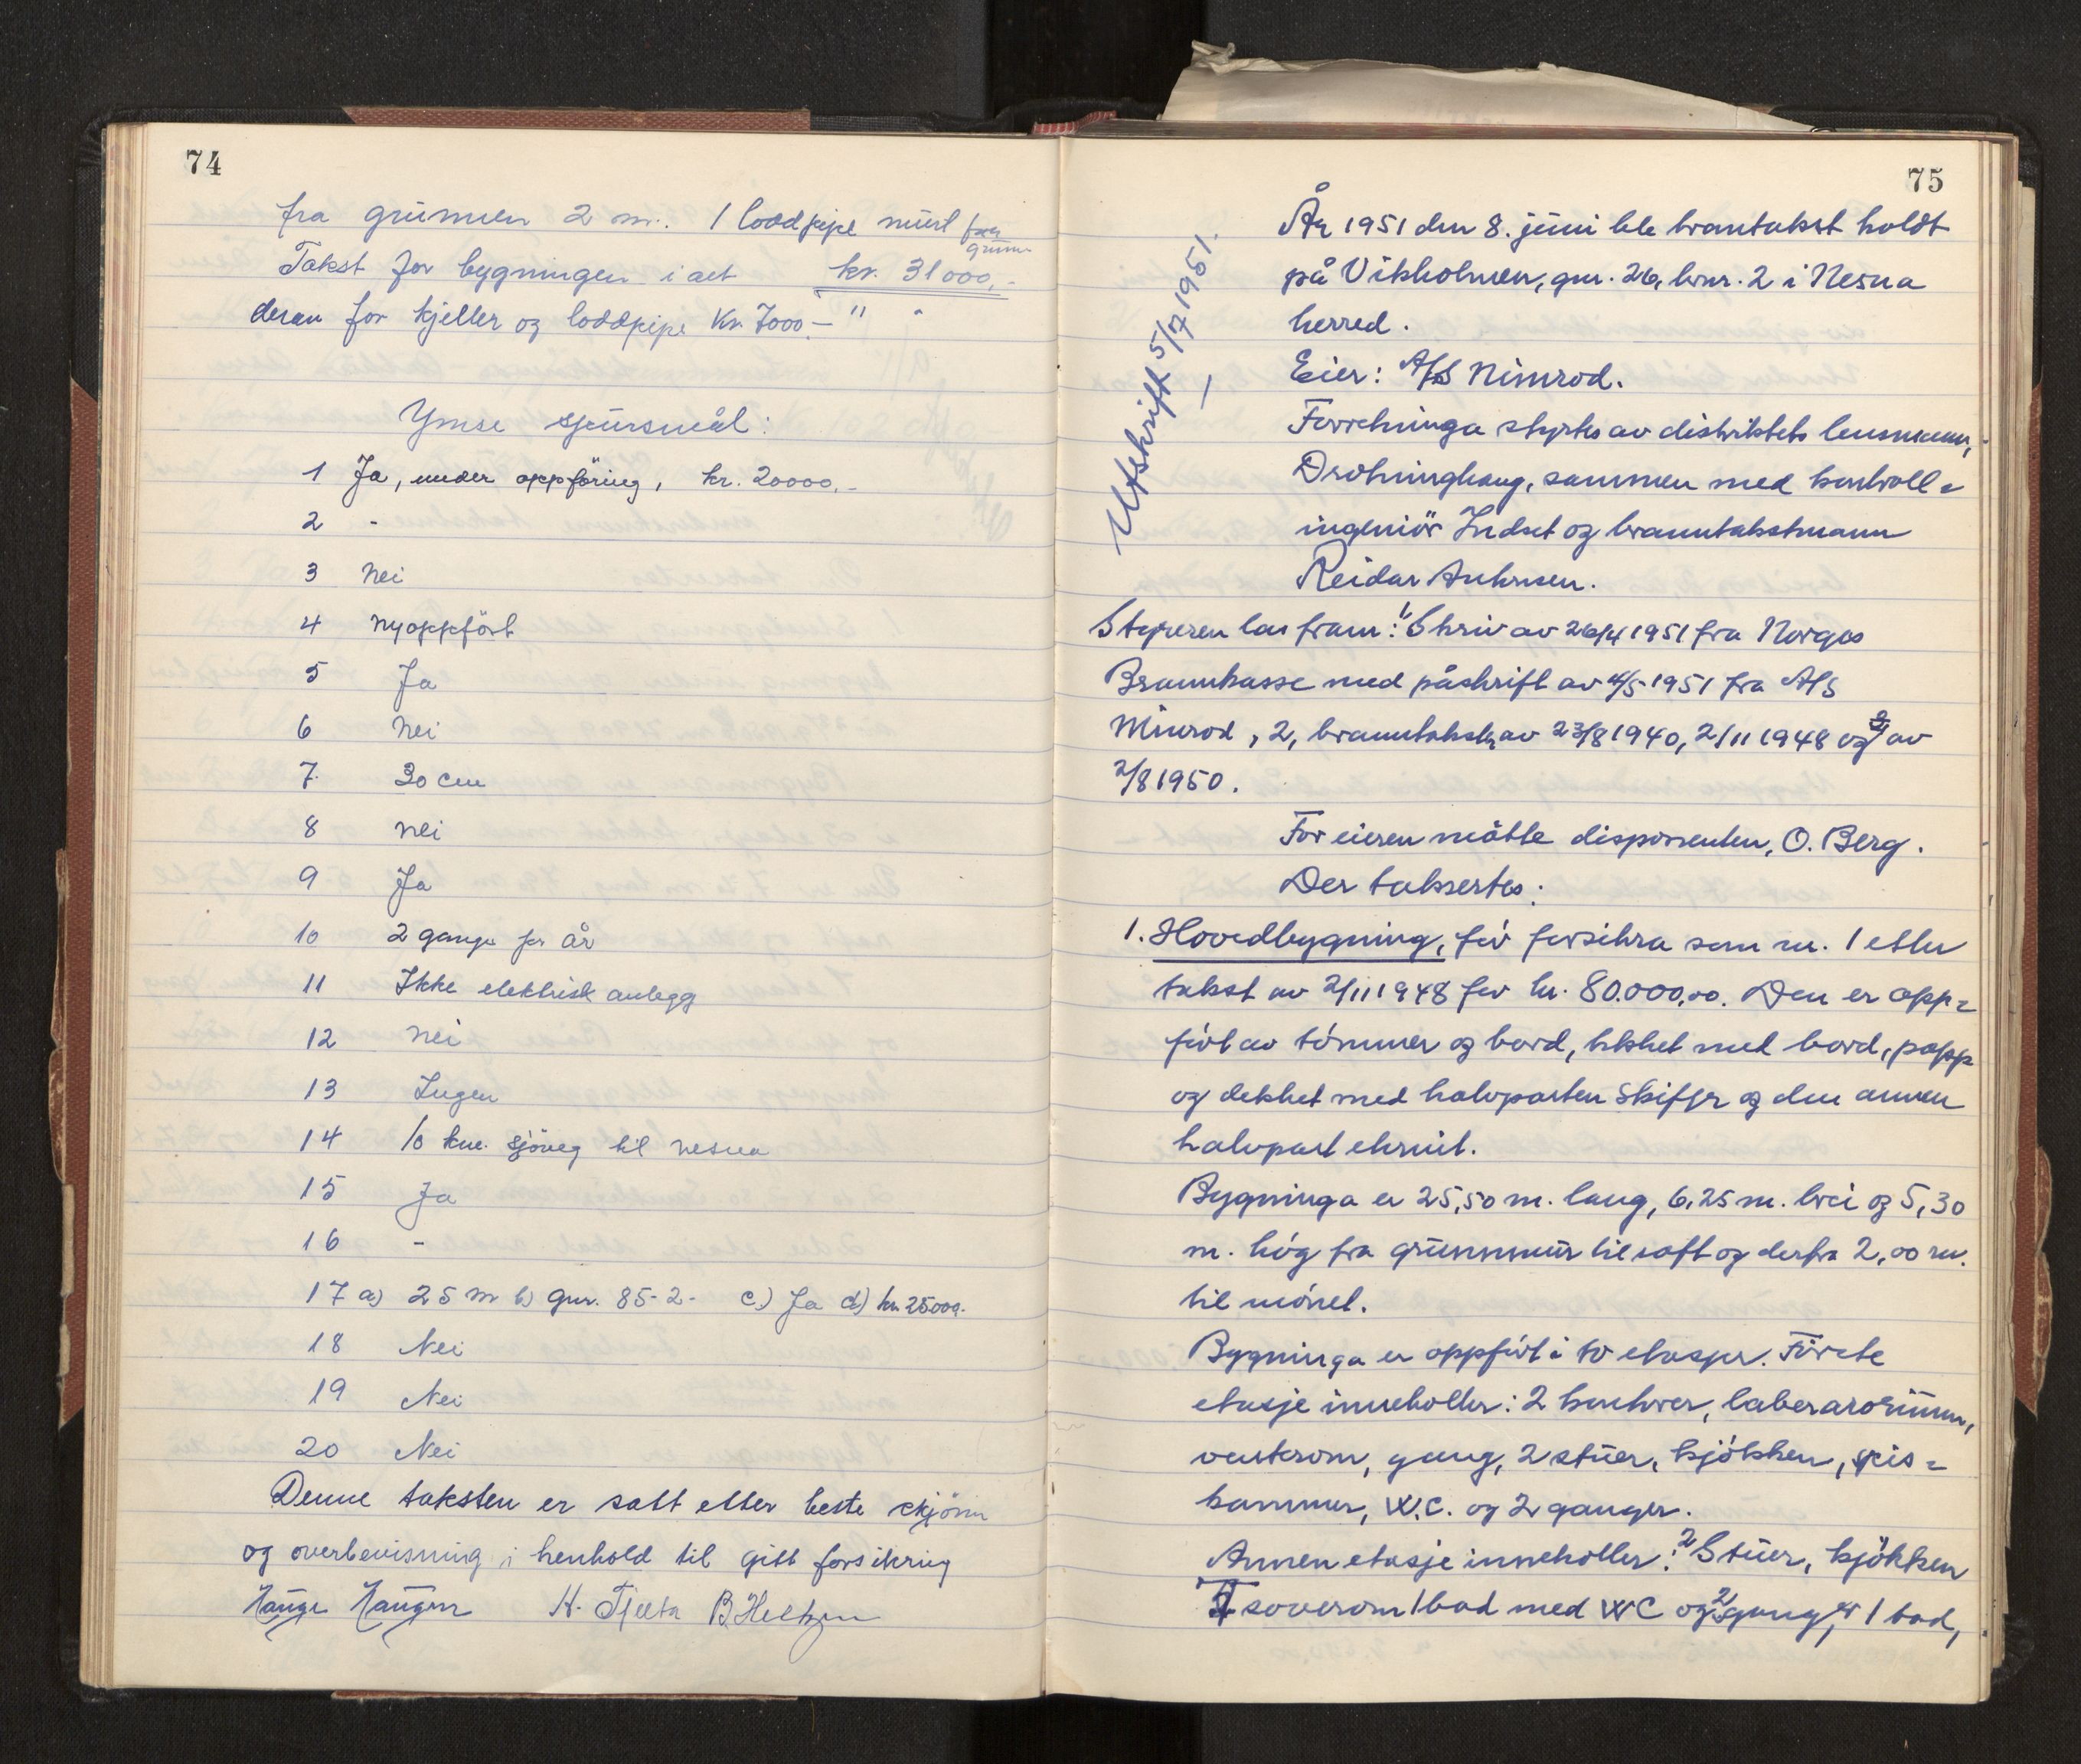 74
fra grunnen 2 m. 1 loddpipe murt fra
grunn
Takst for bygningen i alt kr. 31000,-
derav for kjeller og loddpipe Kr. 7000.- " "
Ymse spursmål:
1 Ja, under oppföring, kr. 20000,-
2 -
3 Nei
4 Nyoppfört
5 Ja
6 Nei
7. 30 cm
8 Nei
9 Ja
10 2 gange pr år
11 Ikke elektrisk anlegg
12 Nei
13 Ingen
14 10 km. sjöveg til Nesna
15 Ja
16 -
17 a) 25 m b) gnr. 85-2- c.) Ja d) kr 25000.-
18 Nei
19 Nei
20 Nei
Denne taksten er satt etter beste skjönn
og overbevisning i henhold til gitt forsikring
Hauge Haugen H. Fjelta B. Heltzen
75
Utskrift 5/7 1951.
År 1951 den 8. juni ble branntakst holdt
på Vikholmen, gnr. 26, bnr. 2 i Nesna
herred.
Eier: A/S Nimrod.
Forretninga styrtes av distriktets lensmann,
Dronninghaug, sammen med kontroll=
ingeniör Indset og branntakstmann
Reidar
Styreren las fram: 1, Skriv av 26/4 1951 fra Norges
Brannkasse med påskrift av 4/5-1951 fra A/S
Nimrod, 2, branntakst av 23/8 1940, 2/11 1948 og av
2/8 1950.
For eieren mötte disponenten, O. Berg.
Der taksertes:
1. Hovedbygning, för forsikra som nr. 1 etter
takst av 2/11 1948 for kr. 80.000,00. Den er opp=
fört av tömmer og bord, tekket med bord, papp
og dekket med halvparten skifer og den annen
halvpart eternit.
Bygninga er 25,50 m. lang, 6,25 m. brei og 5,30
m. hög fra grunnmur til raft og derfra 2,00 m.
til mönet.
Bygninga er oppfört i to etasjer. Förste
etasje inneholler: 2 kontorer, laberarorium,
venterom, gang, 2 stuer, kjökken, spis=
kammer, W.C. og 2 ganger.
Annen etasje inneholler: 2 Stuer, kjökken
7 soverom 1 bad med WC og 2 ganger, 1 bad,